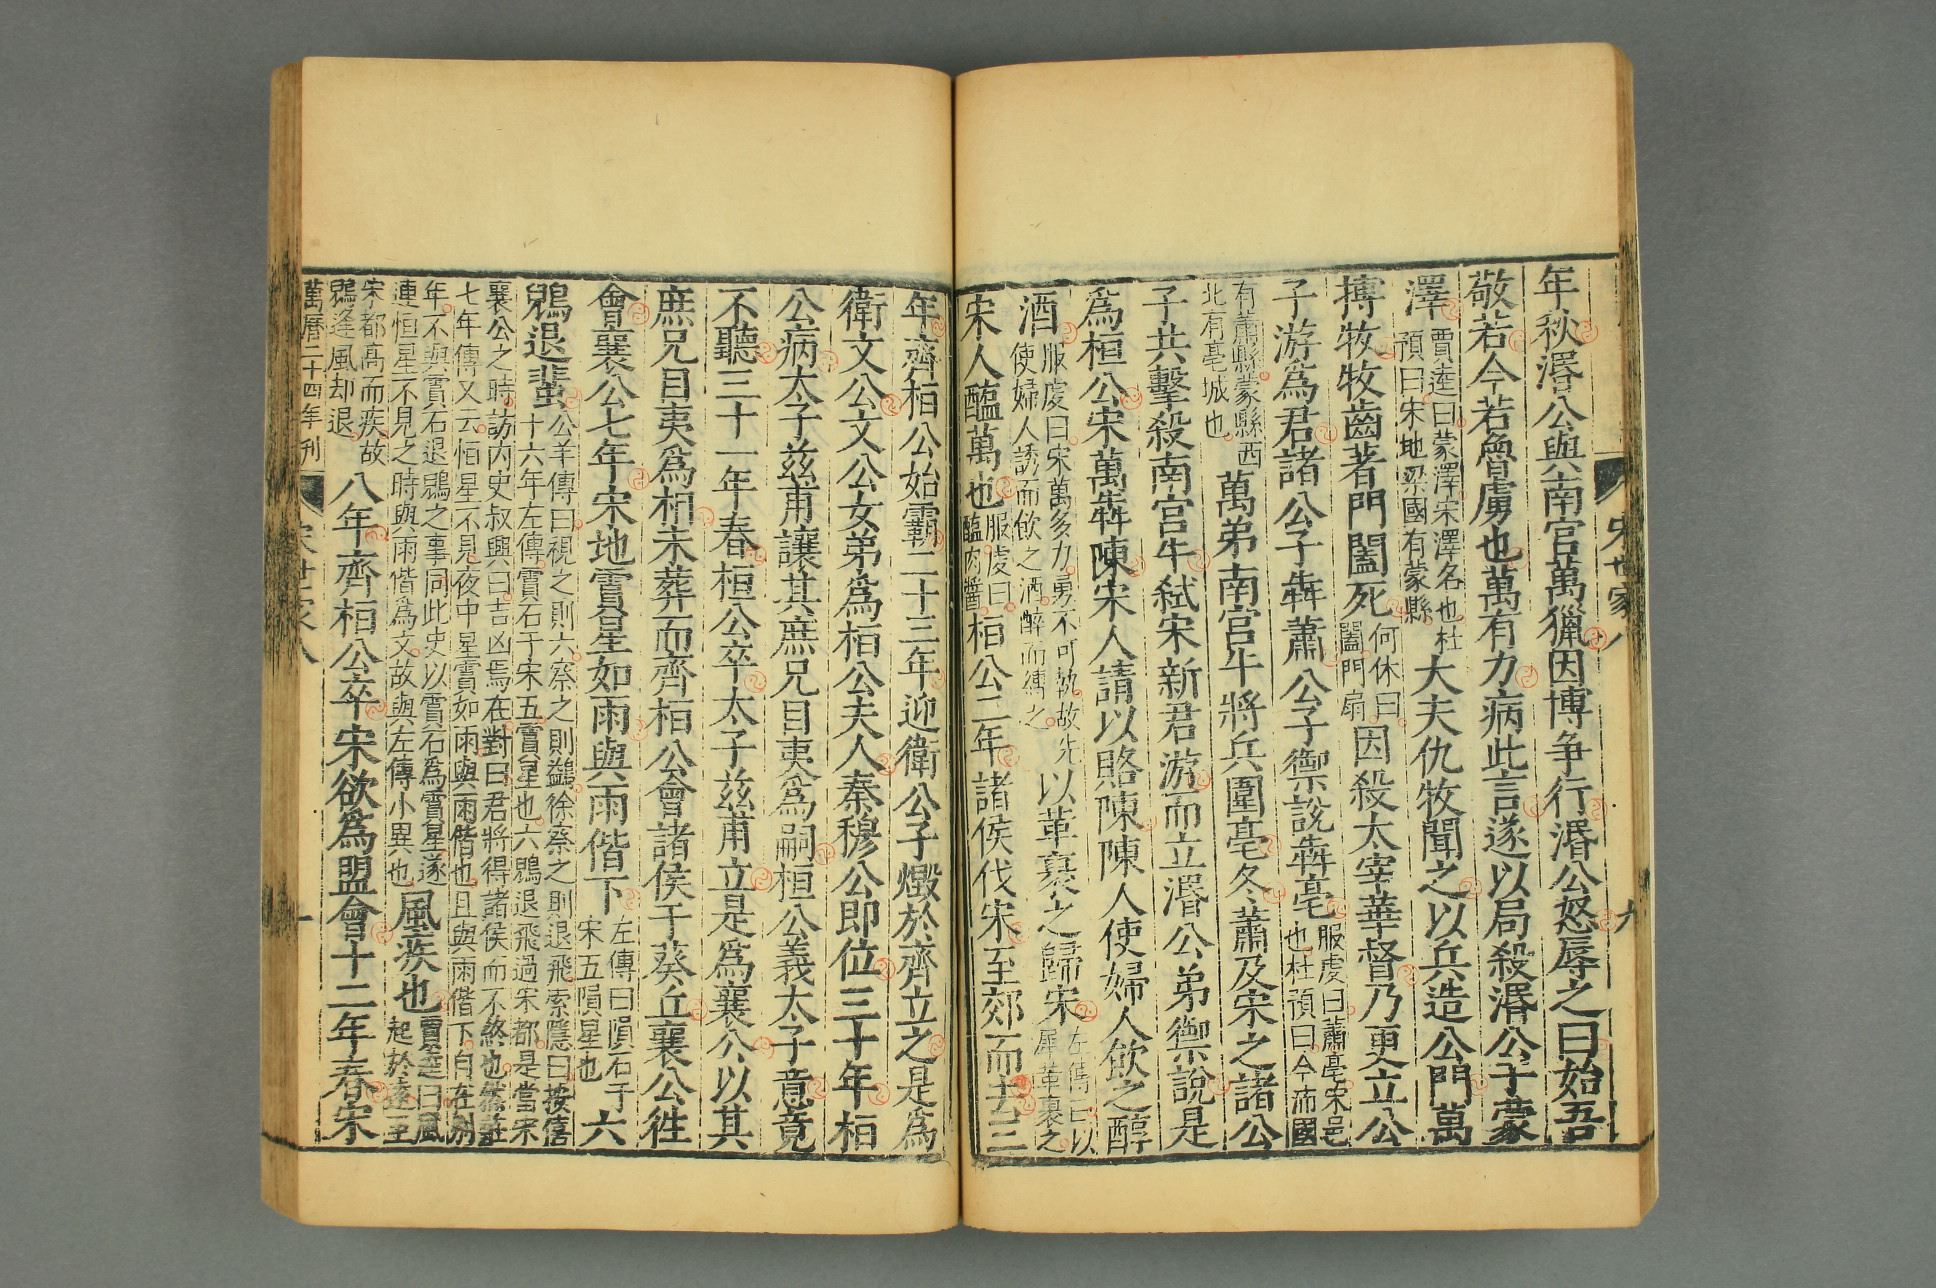 宋世家八 九
年秋湣公與南宮萬獵因博爭行湣公怒辱之曰始吾
敬若今若魯虜也萬有力病此言遂以局殺湣公于蒙
澤賈逵曰蒙澤宋澤名也杜預曰宋地梁國有蒙縣大夫仇牧聞之以兵造公門萬
搏牧牧齒著門闔死何休曰闔門扇因殺太宰華督乃更立公
子游爲君諸公子犇蕭公子禦說犇亳服虔曰蕭亳宋邑也杜預曰今沛國
有蕭縣蒙縣西北有亳城也萬弟南宮牛將兵圍亳冬蕭及宋之諸公
子共擊殺南宮牛弒宋新君游而立湣公弟禦說是
爲桓公宋萬犇陳宋人請以賂陳陳人使婦人飲之醇
酒服虔曰宋萬多力勇不可執故先使婦人誘而飲之酒醉而縛之以革裹之歸宋左傳曰以犀革裹之
宋人醢萬也服虔曰醢肉醬桓公二年諸侯伐宋至郊而去三
年齊桓公始霸二十三年迎衛公子燬於齊立之是爲
衛文公文公女弟爲桓公夫人秦穆公即位三十年桓
公病太子茲甫讓其庶兄目夷爲嗣桓公義太子意竟
不聽三十一年春桓公卒太子茲甫立是爲襄公以其
庶兄目夷爲相未葬而齊桓公會諸侯于葵丘襄公徃
會襄公七年宋地霣星如雨與雨偕下左傳曰隕石于宋五隕星也六
鶂退蜚公羊傳曰視之則六察之則鷁徐察之則退飛索隱曰按僖十六年左傳霣石于宋五霣星也六鶂退飛過宋都是當宋
襄公之時訪內史叔興曰吉凶焉在對曰君將得諸侯而不終也然莊七年傳又云恒星不見夜中星霣如雨與雨偕也且與雨偕下自在別
年不與霣石退鶂之事同此史以霣石爲霣星遂連恒星不見之時與雨偕爲文故與左傳小異也風疾也賈逵曰風起於遠至
宋都高而疾故鶂逢風却退八年齊桓公卒宋欲爲盟會十二年春宋
萬曆二十四年刊 宋世家八